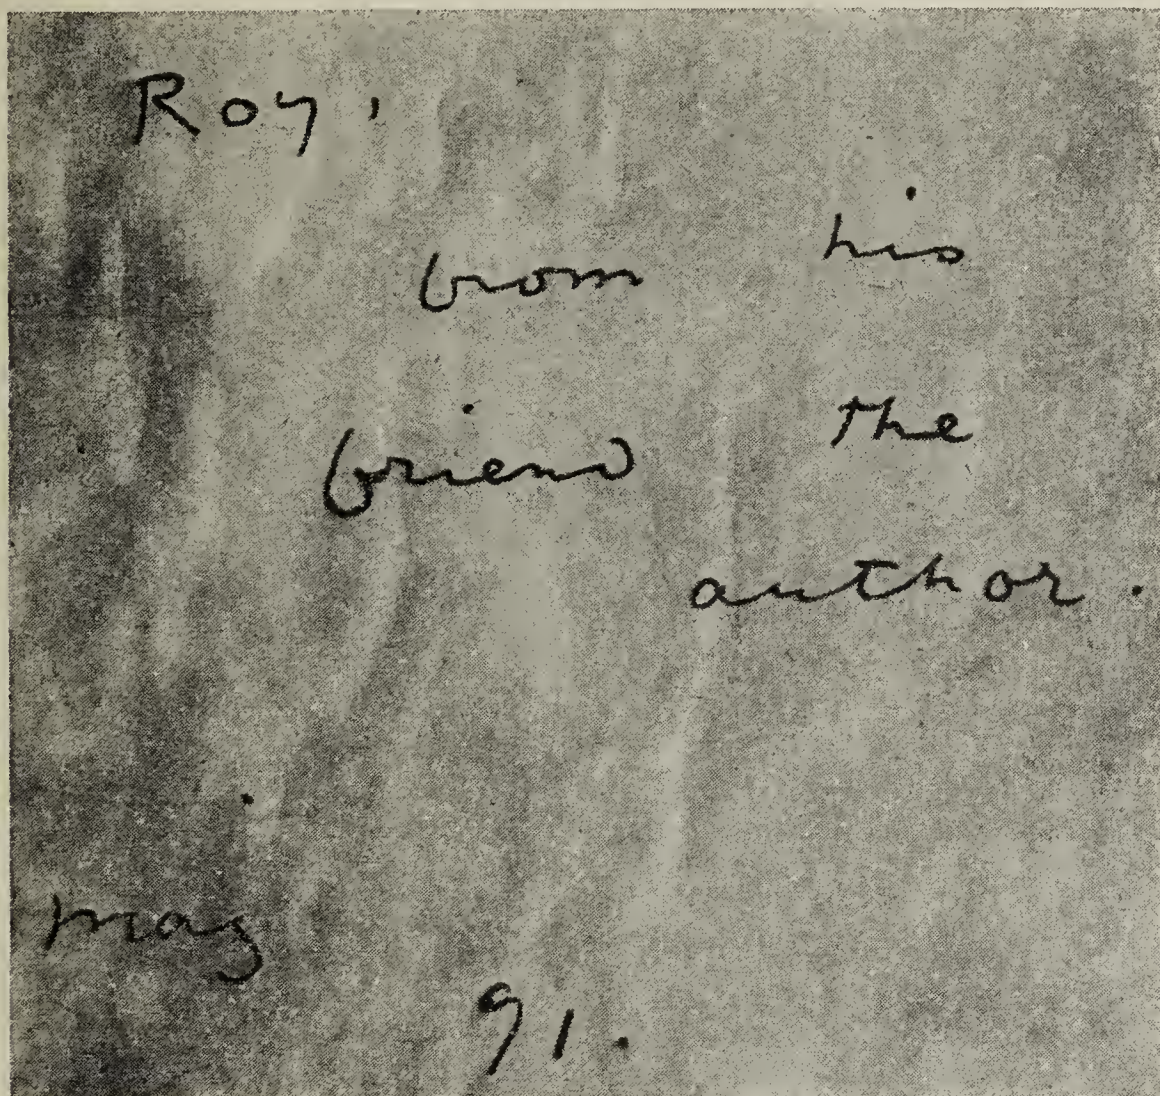 Roy,
from his
friend the
author.
May
91.